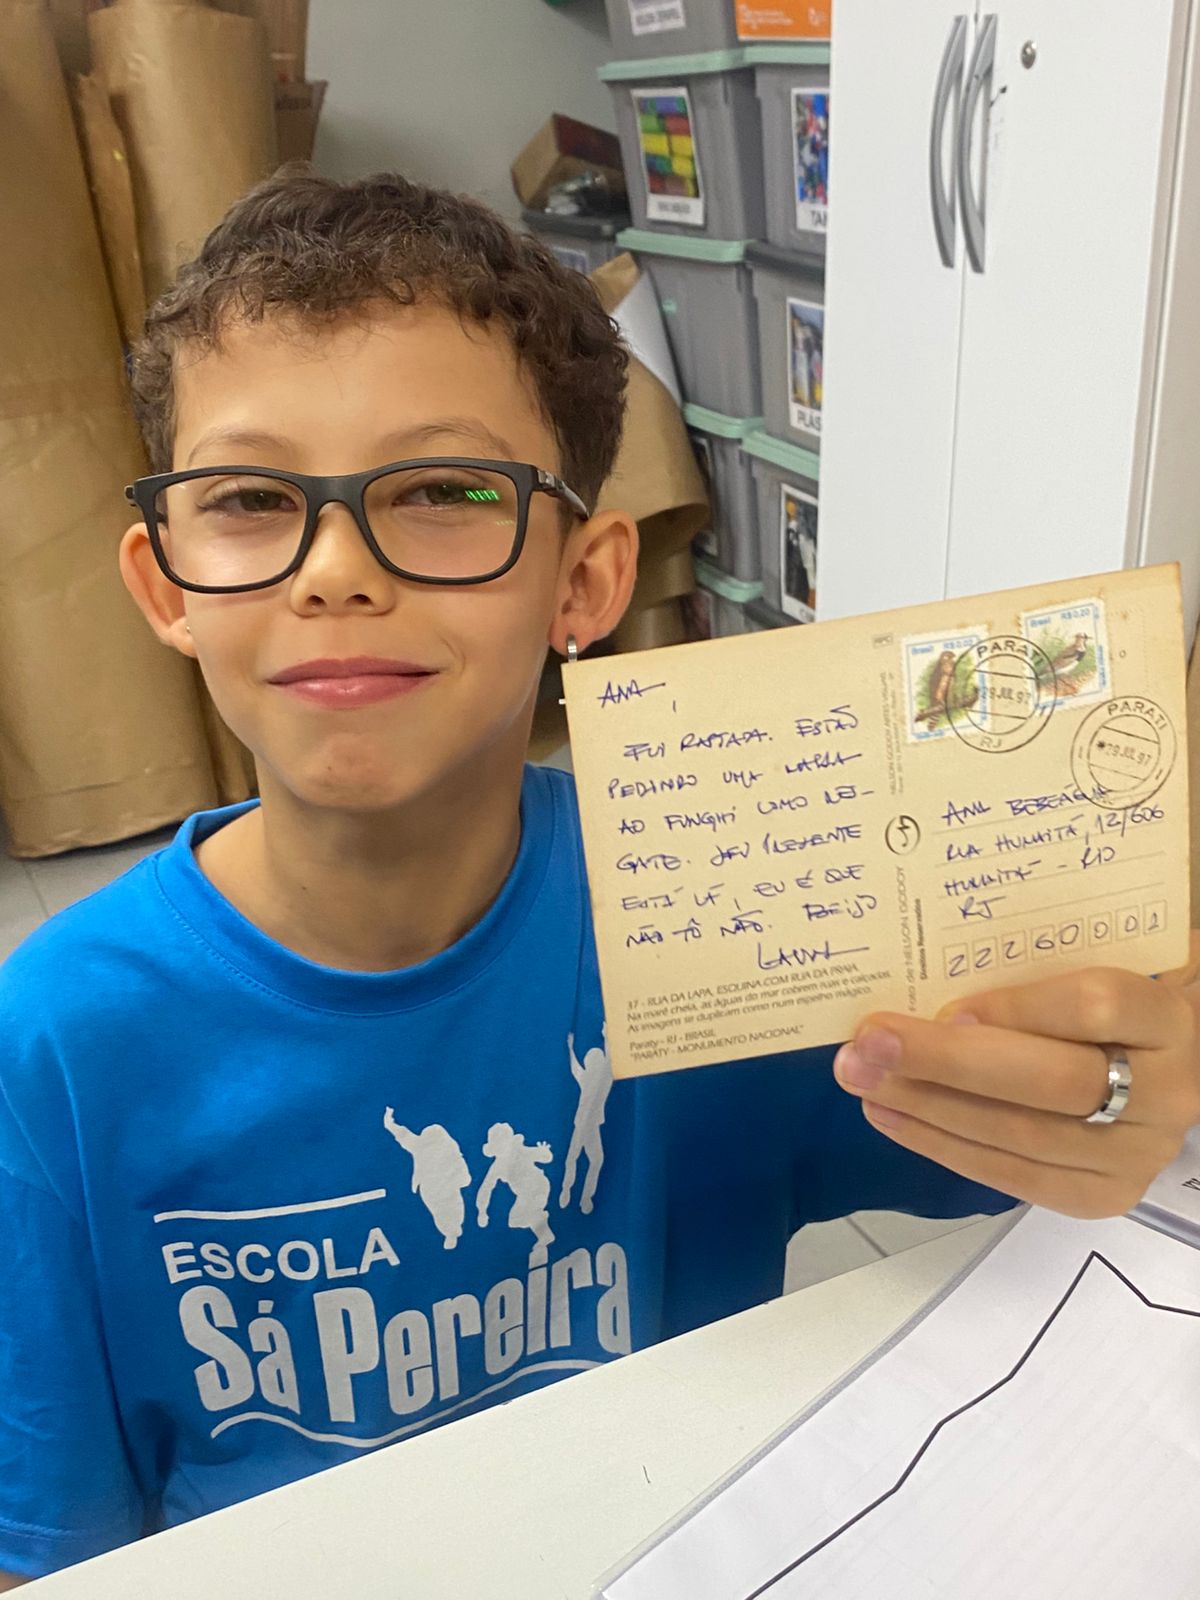 ANA,
FUI RAPTADA. ESTÃO
PEDINDO UMA
AO FUNGHI COMO RES-
GATE. SEU PRESENTE
ESTÁ LÁ, EU É QUE
NÃO TÔ NÃO. BEIJO
LAURA
37 - RUA DA LAPA, ESQUINA COM RUA DA PRAIA
Na maré cheia, as águas do mar cobrem ruas e calçadas.
As imagens se duplicam como num espelho mágico.
Paraty - RJ - BRASIL
"PARATY - MONUMENTO NACIONAL"
Foto de NELSON GODOY
Direitos Reservados
NELSON GODOY ARTES VISUAIS
Brasil R$0,02
Brasil R$0,20
PARATI
29 JUL 97
RJ
PARATI
29 JUL 97
ANA
RUA HUMAITÁ, 12/606
HUMAITÁ - RIO
RJ
22260001
ESCOLA
Sá Pereira